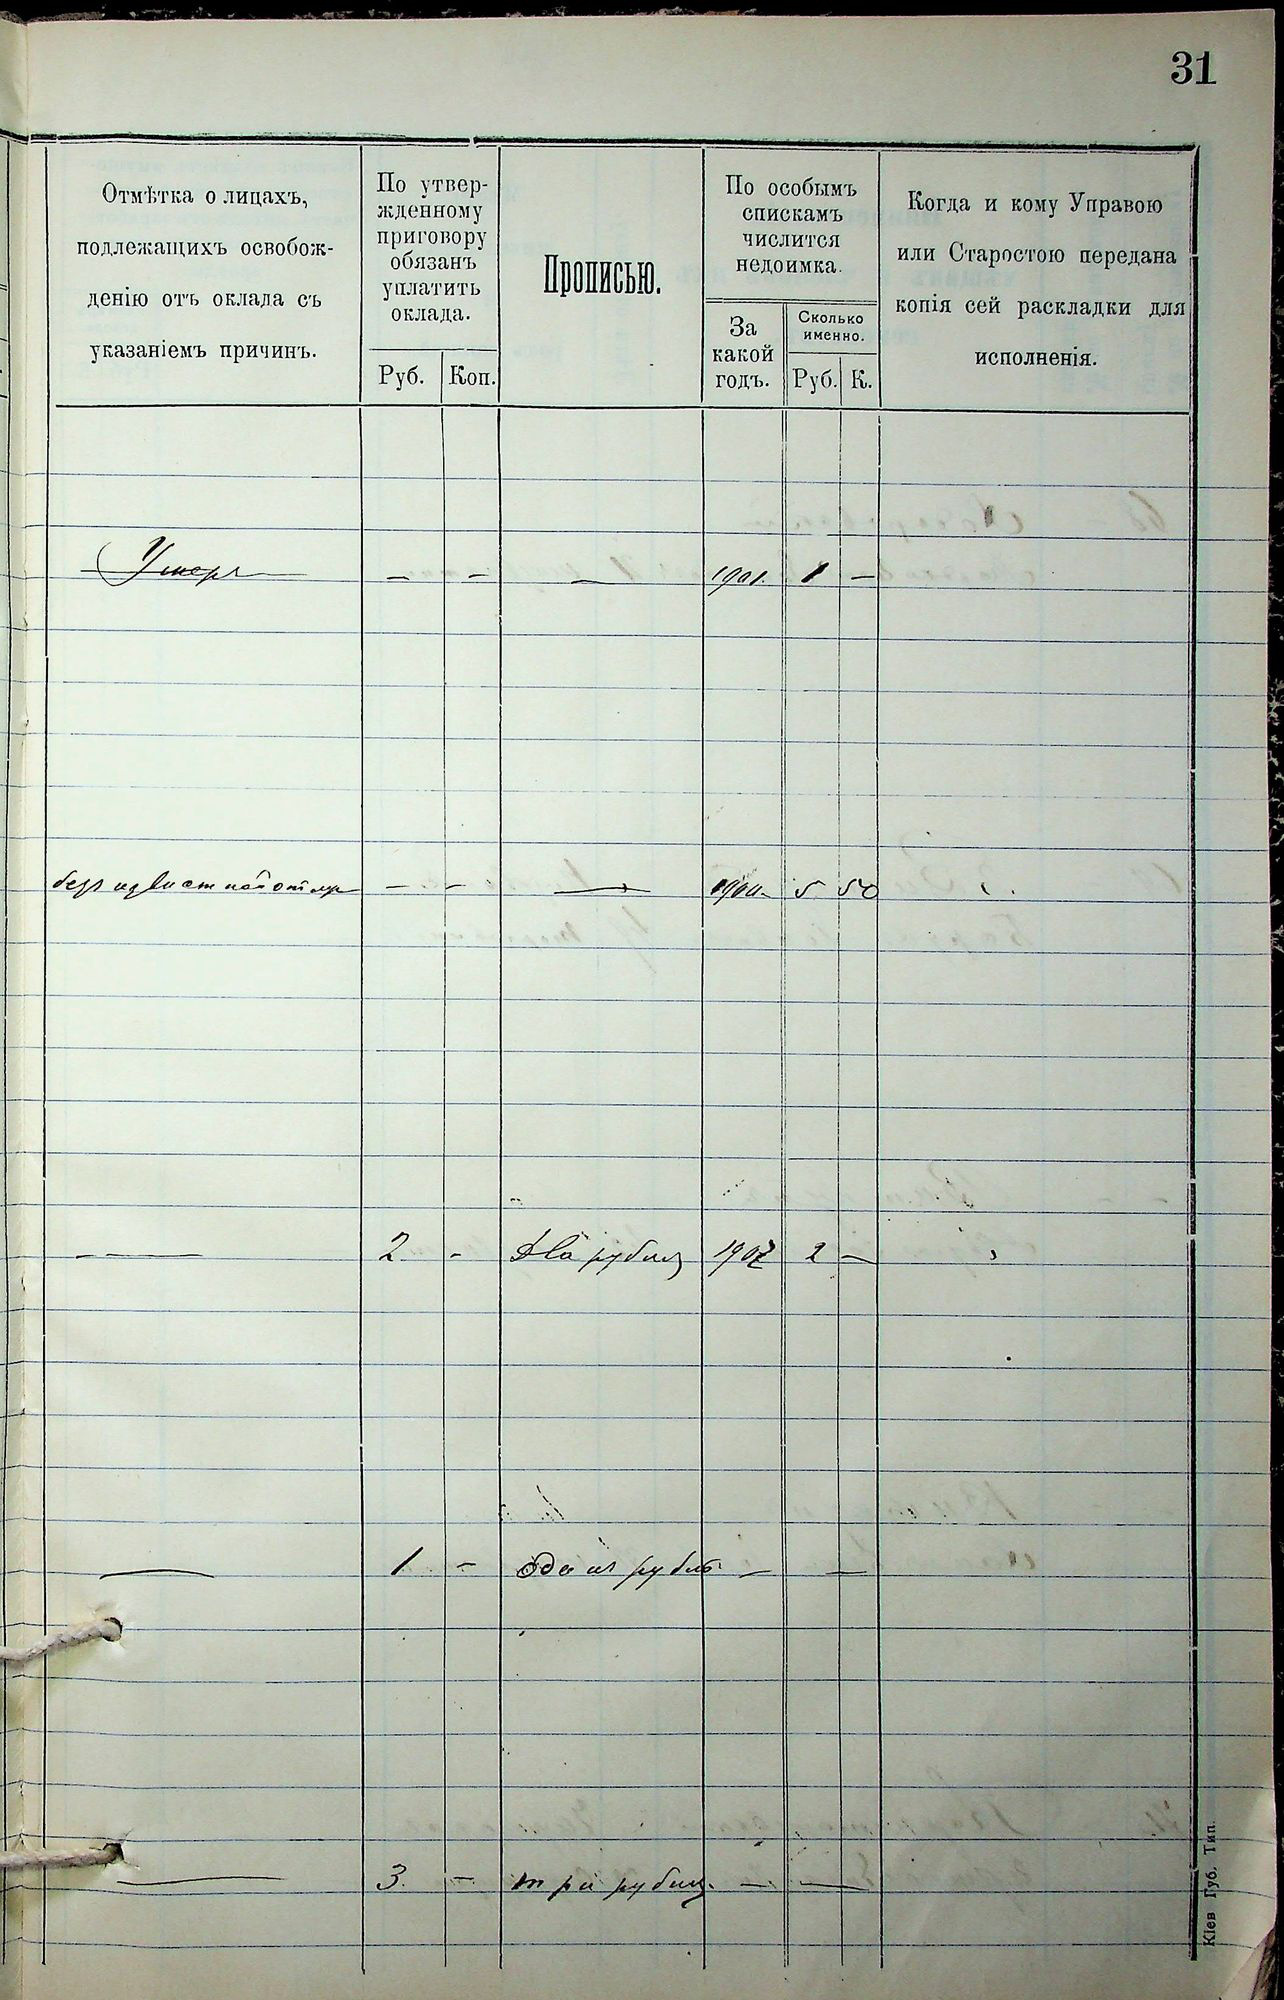 31
Отмѣтка о лицахъ,
подлежащихъ освобож-
денію отъ оклада съ
указаніемъ причинъ.
По утвер-
жденному
приговору
обязанъ
уплатить
оклада.
Руб.
Коп.
Прописью.
По особымъ
спискамъ
числится
недоимка.
За
какой
годъ.
Сколько
именно.
Руб.
К.
Когда и кому Управою
или Старостою передана
копія сей раскладки для
исполненія.
Умеръ — — — 1901. 1 —
— — — 1900. 5 50
— 2 - Два рубля 1907 2 —
— 1 - Один рубль — —
— 3. - три рубля. — —
Кіев Губ. Тип.